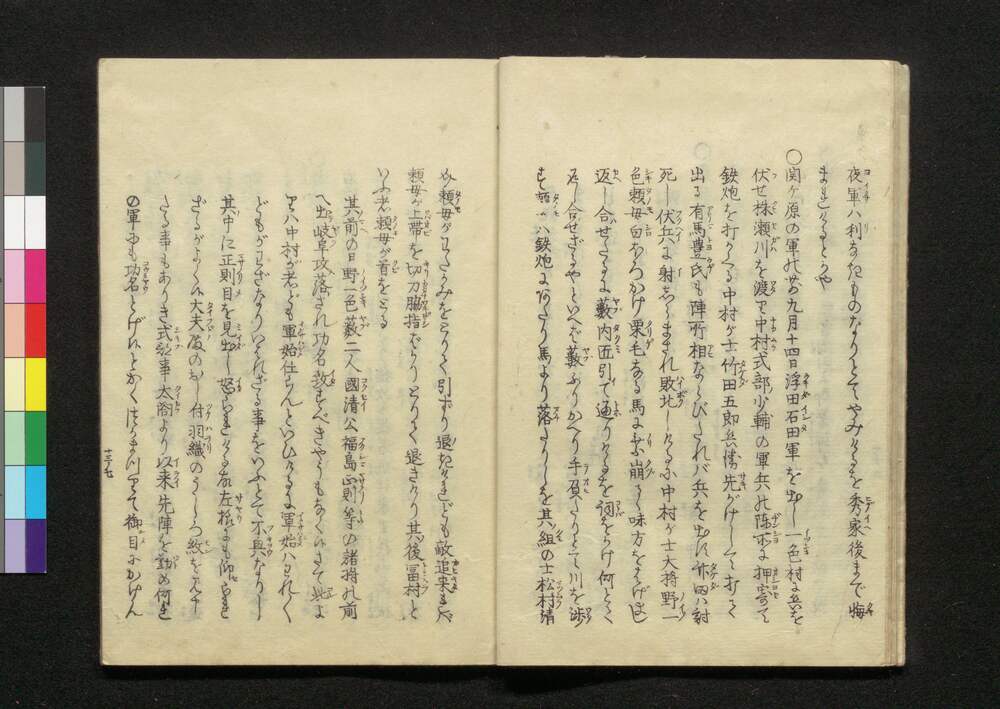 夜軍ハ利なきものなりとてやみけるを秀家後まで悔
まれけるとかや
〇関ヶ原の軍の前九月十四日浮田石田軍を出し一色村に兵を
伏せ株瀬川を渡り中村式部少輔の軍兵の陣所に押寄て
鉄炮を打かくる中村が士竹田五郎兵衛先がけして打て
出る有馬豊氏も陣所相ならびたれバ兵を出す竹田ハ討
死し伏兵に射しらまされ敗北しけるに中村が士大将野一
色頼母白ほろかけ栗毛なる馬に乗崩るゝ味方をはげまし
返し合せざるに藪内匠引て通りけるを詞をかけ何とて
返し合せざるやといへど藪ふりかへり手負たりとて川を渉
す頼母ハ鉄炮にあたり馬より落たりしを其組の士松村清
頼母がわたがみをとりて引ずり退たれども敵追来れバ
頼母が上帯を切刀脇指ばかりとりて退きけり其後冨村と
いふ者頼母が首をとる
其前の日野一色藪二人國清公福島正則等の諸将の前
へ出岐阜攻落され功名数すべきやうもなく候さて此よ
りハ中村が者ども軍始仕らんといひけるに軍始ハわれ〳〵
どもがわざなりいはれざる事をいふとて不興なりし
其中に正則目を見出し怒られける故左様にも仰られ
ざるがよく候大夫殿のめし付羽織のうしろ紋を見申
さる事もありき式部事太閤より以来先陣を勤め何れ
の軍にも功名をとげ候とかく候はま川にて御目にかけん
十三ノ七